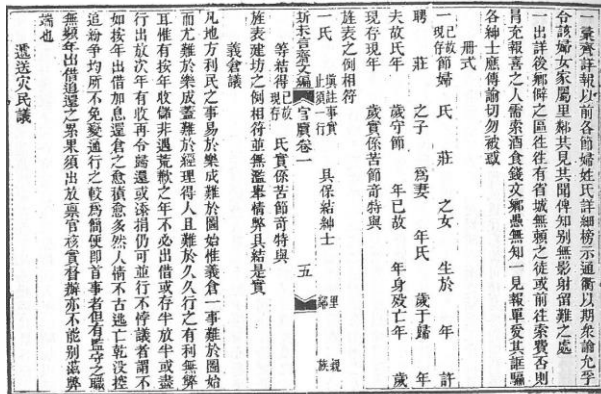 一彙齊詳報以前各節婦姓氏詳細榜示通衢以期衆論允孚
合該婦女家屬里鄰其見其聞俾知別無影射留難之處
一出詳後鄉僻之區往往有省城無賴之徒或前往索費否則
冐充報喜之人需索酒食錢文鄉愚無知一見報單愛其誆騙
各紳士應傳諭切勿被惑
册式
一 已故現存 節婦 氏 莊 之女 生於 年 許
聘 莊 之子 爲妻 年氏 歲于歸 年
夫故氏年 歲守節 年已故 年身歿亡年 歲
現存現年 歲實係苦節奇特與
旌表之例相符
一氏 填註事實此須一行 具保結紳士 里鄰 親族
斯未信齋文編 官牘卷一 五
等結得 已故現存 氏實係苦節奇特與
旌表建坊之例相符並無濫舉情弊具結是實
義倉議
凡地方利民之事易於樂成難於圖始惟義倉一事難於圖始
而尤難於樂成蓋難於經理得人且難於久久行之有利無弊
耳惟有按年收儲非遇荒歉之年不必出借或存半放半或盡
行出放次年有收再令歸還或漆捐仍可並行不悖議者謂不
如按年出借加息還倉之愈積愈多然人情不古逃亡乾没控
追紛爭均所不免變通行之較爲簡便即首事者但有監守之職
無頻年出借追還之累果須出放禀官核實督辦亦不能別滋弊
端也
遞送灾民議